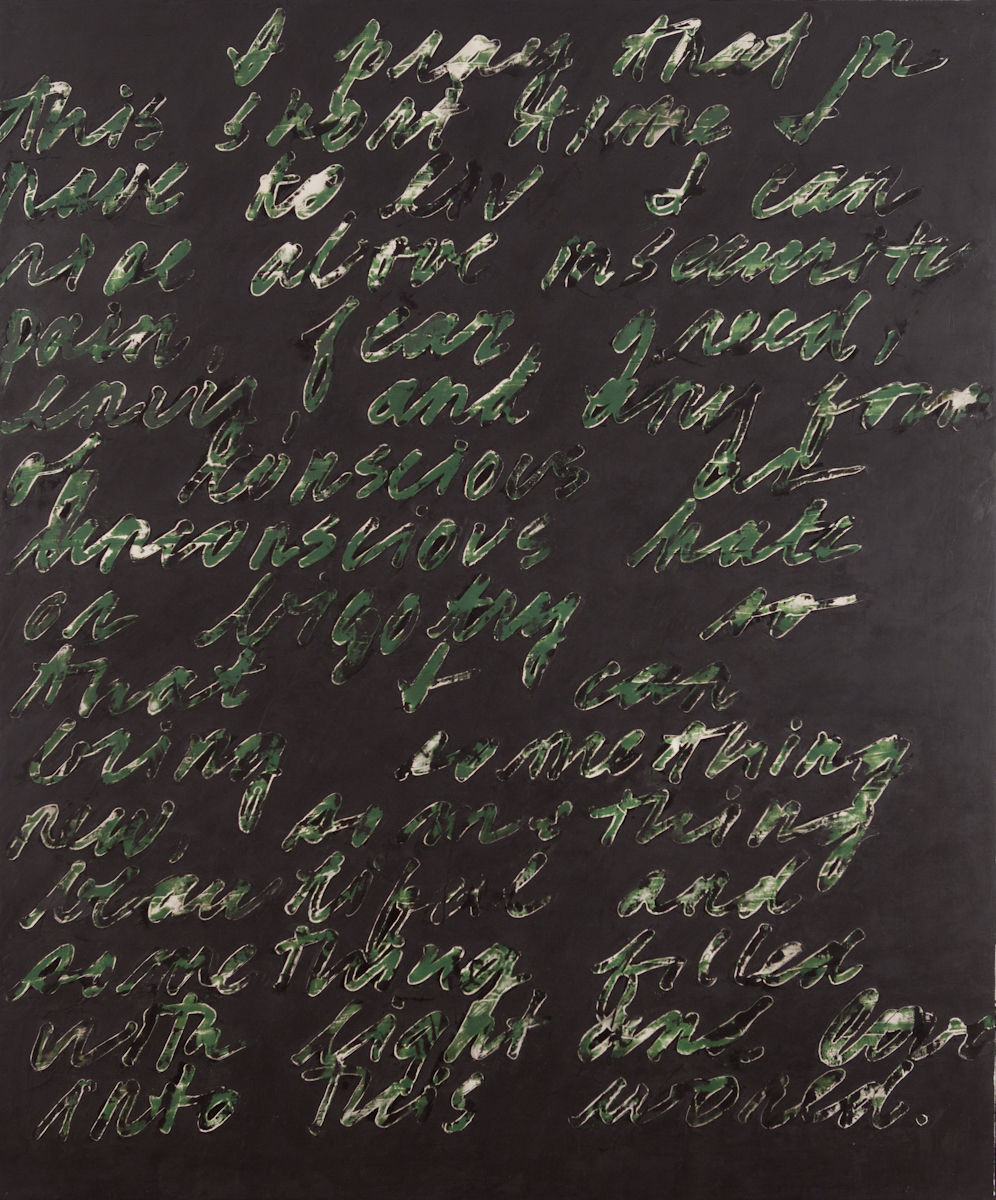 I pray that in
this short time I
have to liv I can
rise above insecurity
pain, fear, greed,
envy, and any form
of conscious or
unconscious hate
or bigotry so
that I can
bring something
new, something
beautiful and
something filled
with light and love
into this world.